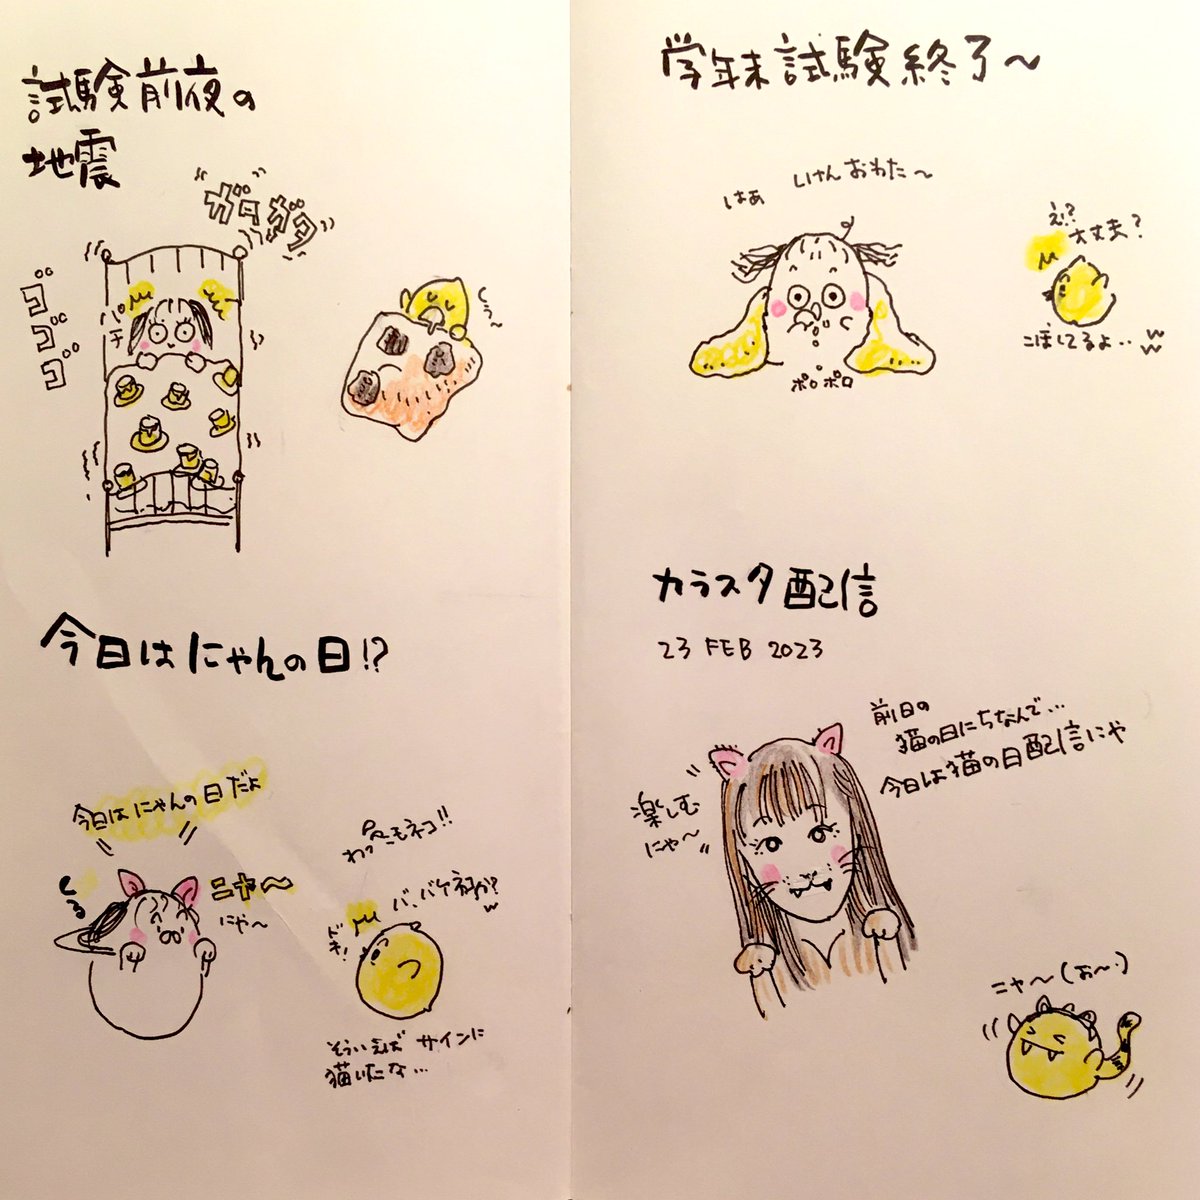 試験前夜の
地震
ガタガタ
ゴゴゴ
パチ
今日はにゃんの日!?
今日はにゃんの日だよ
ニャ〜
にゃ〜
くるっ
バ、バケネコか?
w
ドキ!
そういえば サインに
猫いたな…
学年末試験終了〜
はぁ しけんおわた〜
ポロポロ
え?
大丈夫?
こぼしてるよ.. w
w
カラスタ配信
23 FEB 2023
前日の
猫の日にちなんで…
今日は猫の日配信にゃ
楽しむ
にゃ〜
ニャ〜(お〜.)